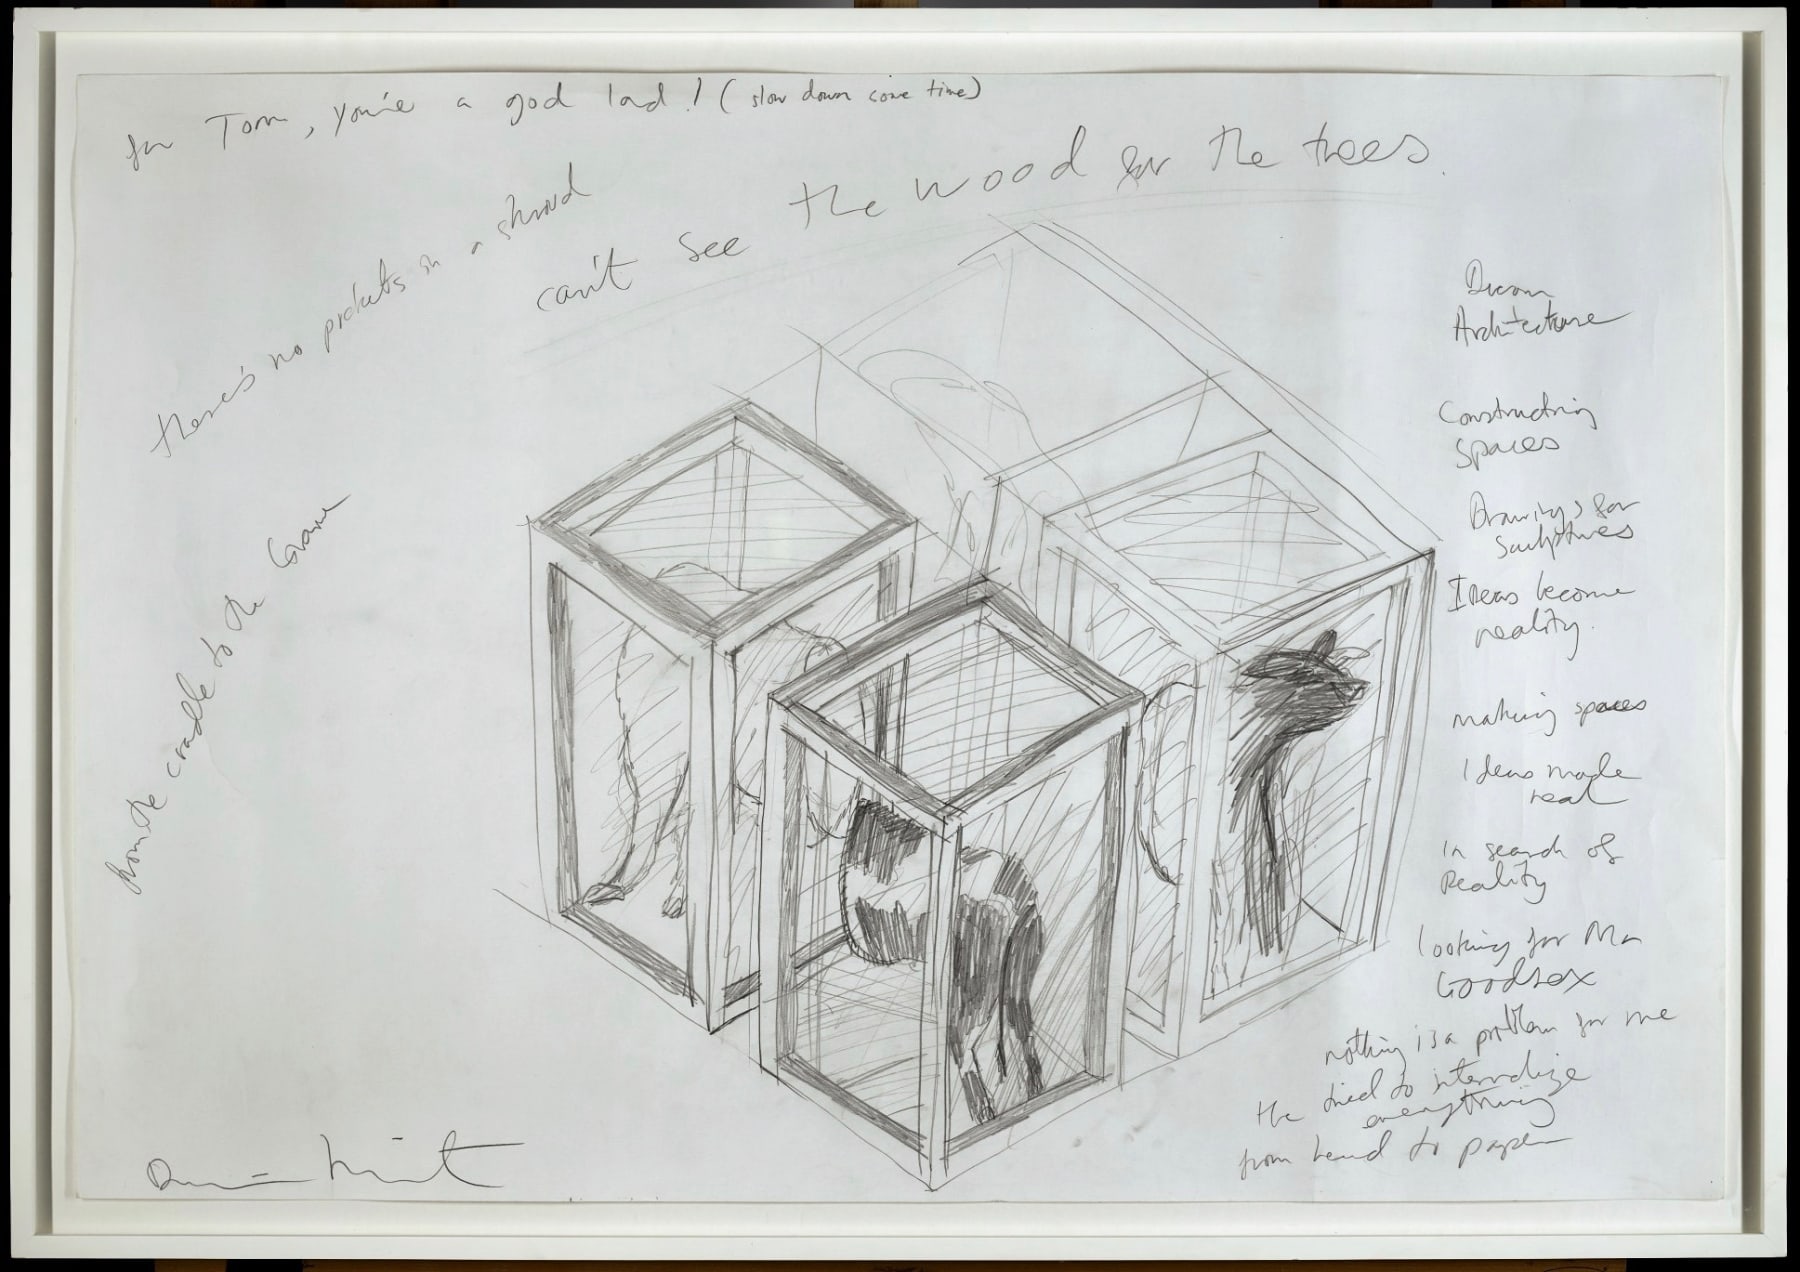 for Tom, you're a good lad! (slow down some time)
can't see the wood for the trees.
there's no pockets in a shroud
from the cradle to the Grave
Dream
Architecture
Constructing
spaces
Drawings for
sculptures
Ideas become
reality.
making spaces
Ideas made
real
in search of
Reality
looking for Mr
Goodsex
nothing is a problem for me
the tried to internalize
everything
from head to paper
Damien Hirst